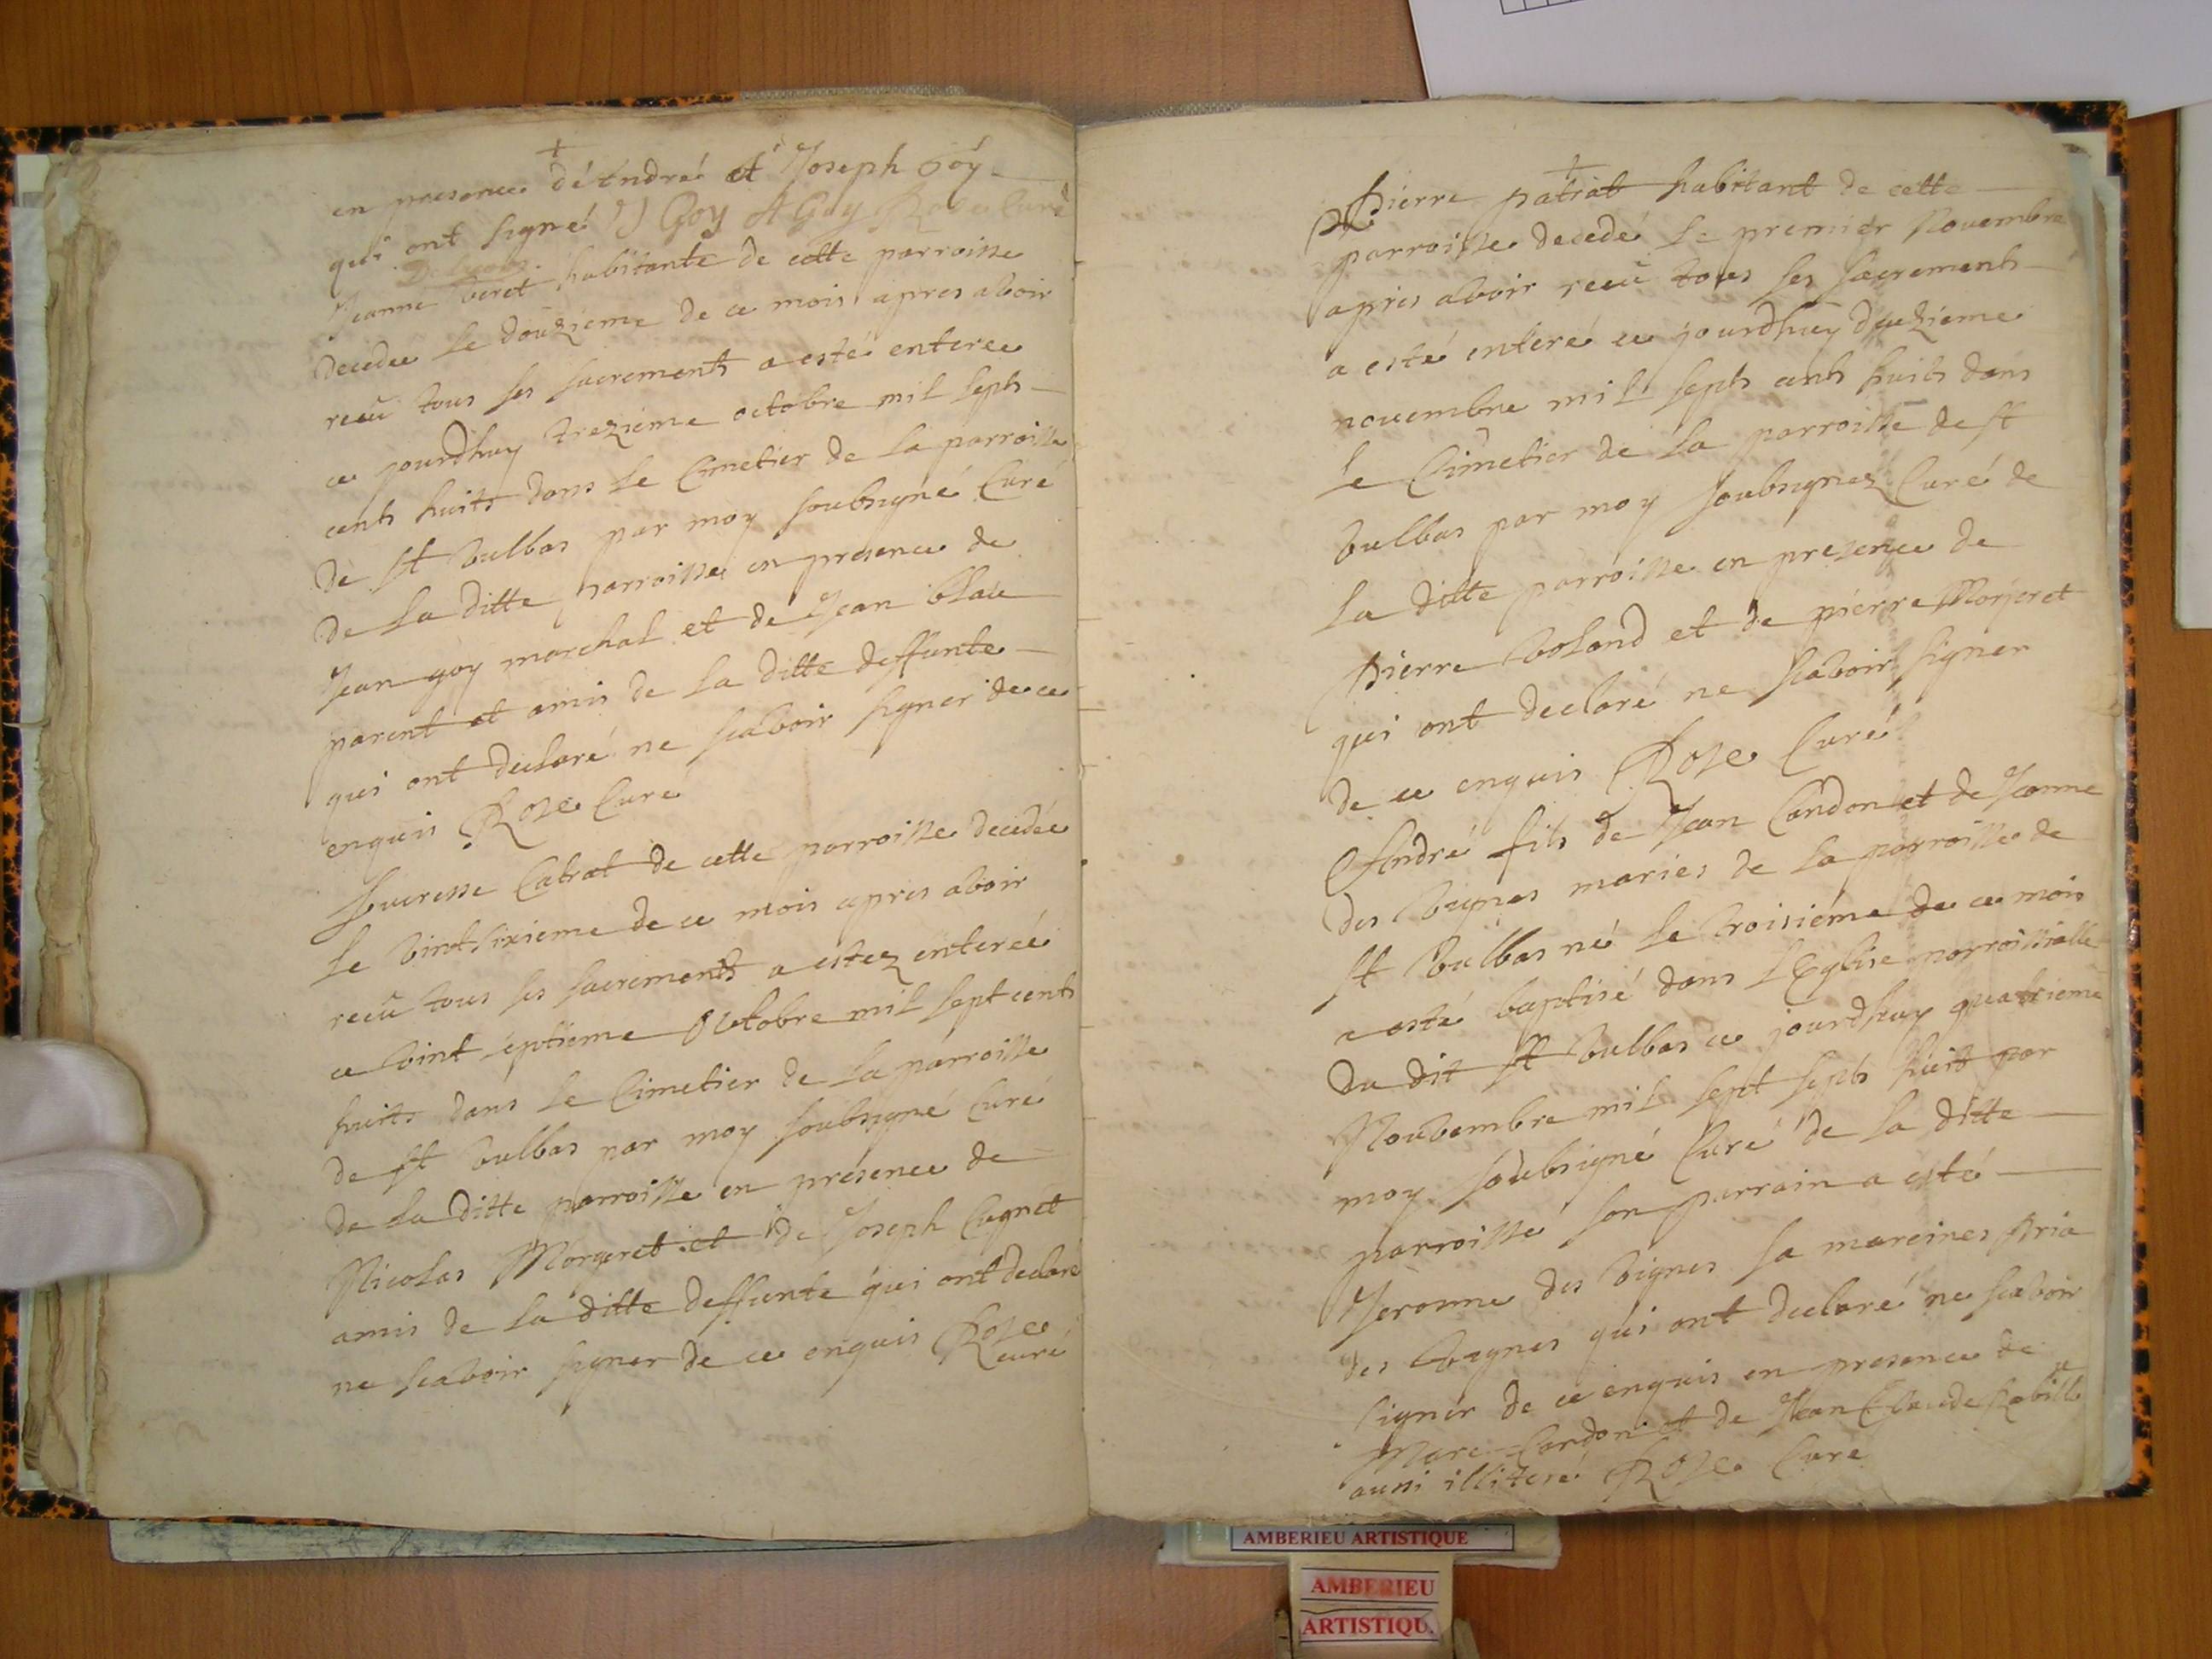 en presence d'André et Joseph Goy
qui ont signé J Goy A Goy Roze Curé
Jeanne beret habitante de cette parroisse
decedee le douzieme de ce mois apres avoir
reçû tous ses sacrements a esté enteree
ce jourdhuy trezieme octobre mil septs
cents huits dans le Cimetier de la parroisse
de st Vulbas par moy soubsigné Curé
de la ditte parroisse en presence de
Jean goy marchal et de Jean
parent et amis de la ditte deffunte
qui ont declaré ne scavoir signer de ce
enquis Roze Curé
Lucresse Cabrat de cette parroisse decedée
le vint sixieme de ce mois apres avoir
reçû tous ses sacrements a estez enterée
ce vint septieme Octobre mil sept cents
huits dans le Cimetier de la parroisse
de st Vulbas par moy soubsigné Curé
de la ditte parroisse en présence de
Nicolas Morgeret et de Joseph Cugnet
amis de la ditte deffunte qui ont declaré
ne scavoir signer de ce enquis Roze
curé
Pierre patrat habitant de cette
parroisse decedé le premier Novembre
apres avoir reçû tous ses sacrements
a esté enteré ce jourdhuy deuzieme
novembre mil septs cents huits dans
le Cimetier de la parroisse de st
Vulbas par moy soubsignez Curé de
la ditte parroisse en presence de
pierre Voland et de pierre Morjeret
qui ont declaré ne scavoir signer
de ce enquis Roze Curé
André fils de Jean Cardon et de Jeanne
des Vignes maries de la parroisse de
st Vulbas né le troisiéme de ce mois
a esté baptisé dans l'Eglise parroissialle
du dit st Vulbas ce jourdhuy quatrieme
Novembre mil sept septs huit par
moy soubsigné Curé de la ditte
parroisse son parrain a esté
Jerosme des Vignes sa mareines
des Vignes qui ont declaré ne scavoir
signer de ce enquis en presence de
Marc Cardon et de Jean Claude
aussi illiteré Roze Curé
AMBERIEU ARTISTIQUE
AMBERIEU
ARTISTIQU